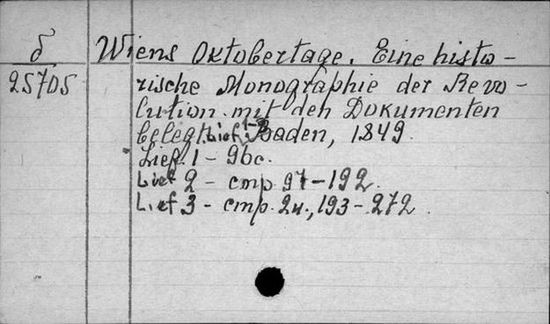 δ Wiens Oktobertage. Eine histo-
25705 rische Monographie der Revo-
lution mit den Dokumenten
belegt. Lief. 1-3 Baden, 1849.
Lief. 1 - 96 с.
Lief 2 - стр. 97-192.
Lief 3 - стр. 2н., 193-272.